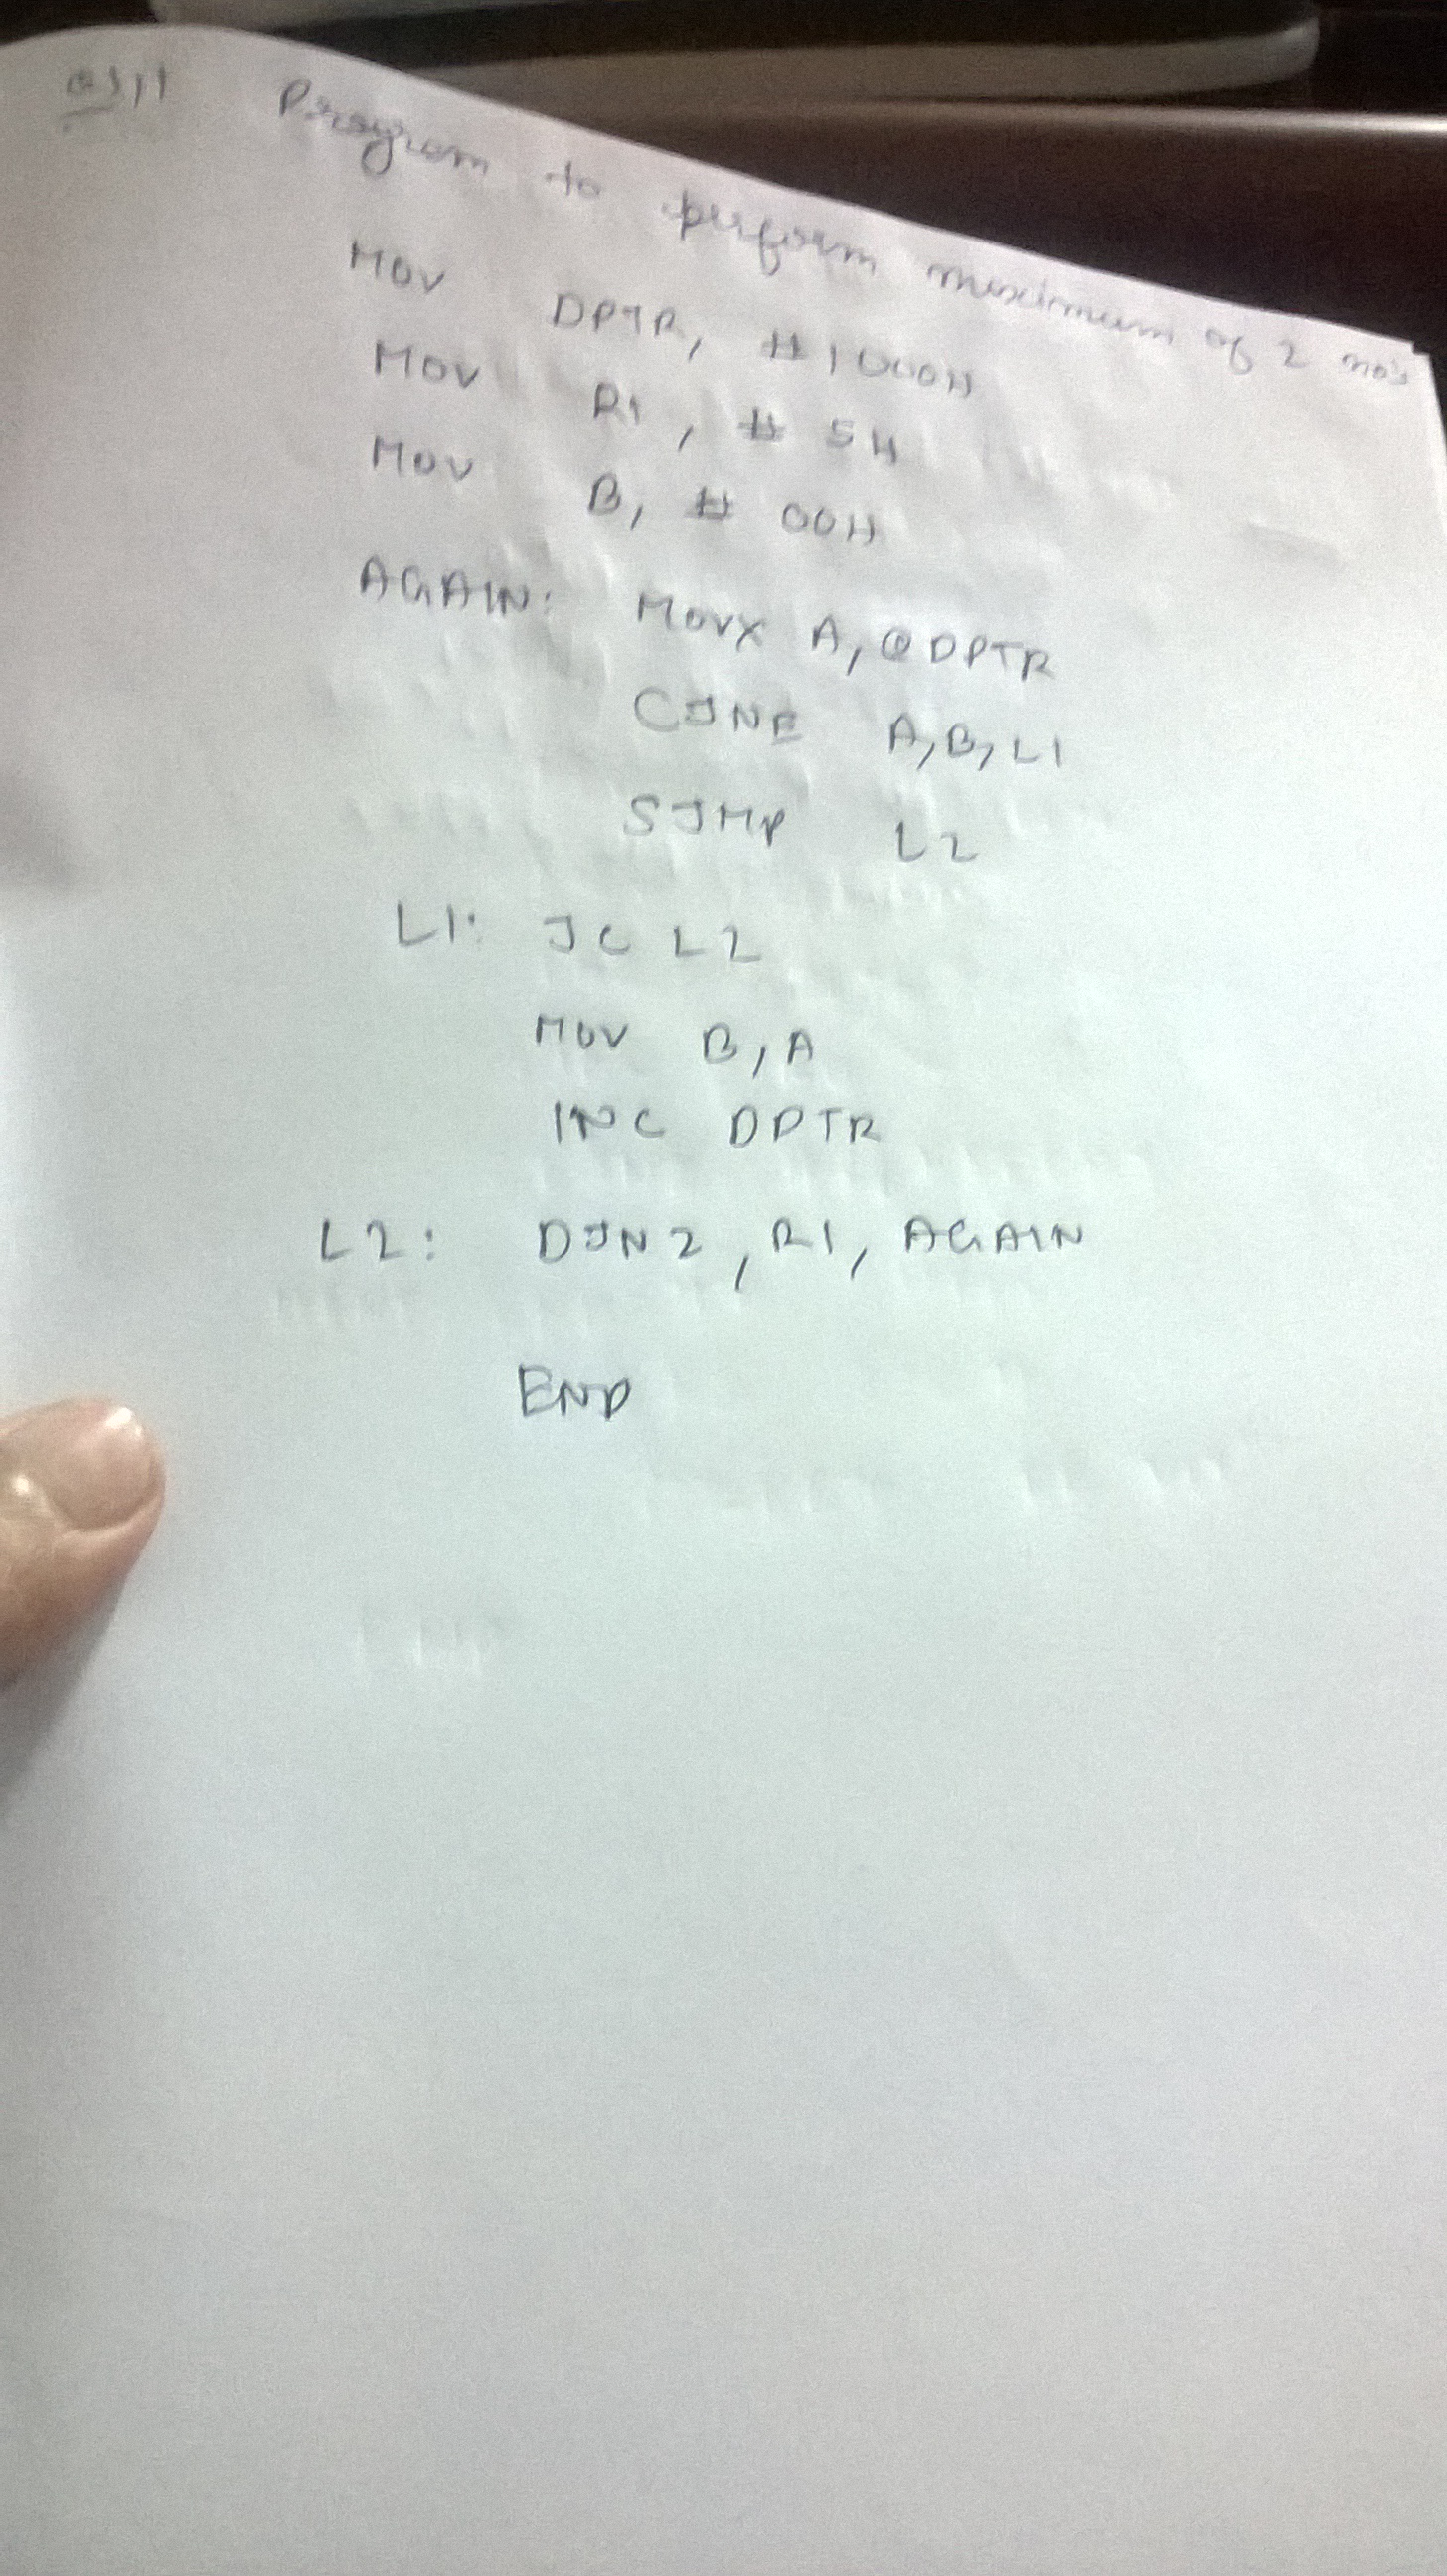 Program to perform maximum of 2 no's
MOV DPTR, #1000H
MOV R1, # 5H
MOV B, # 00H
AGAIN: MOVX A, @DPTR
CJNE A, B, L1
SJMP L2
L1: JC L2
MOV B, A
INC DPTR
L2: DJNZ, R1, AGAIN
END